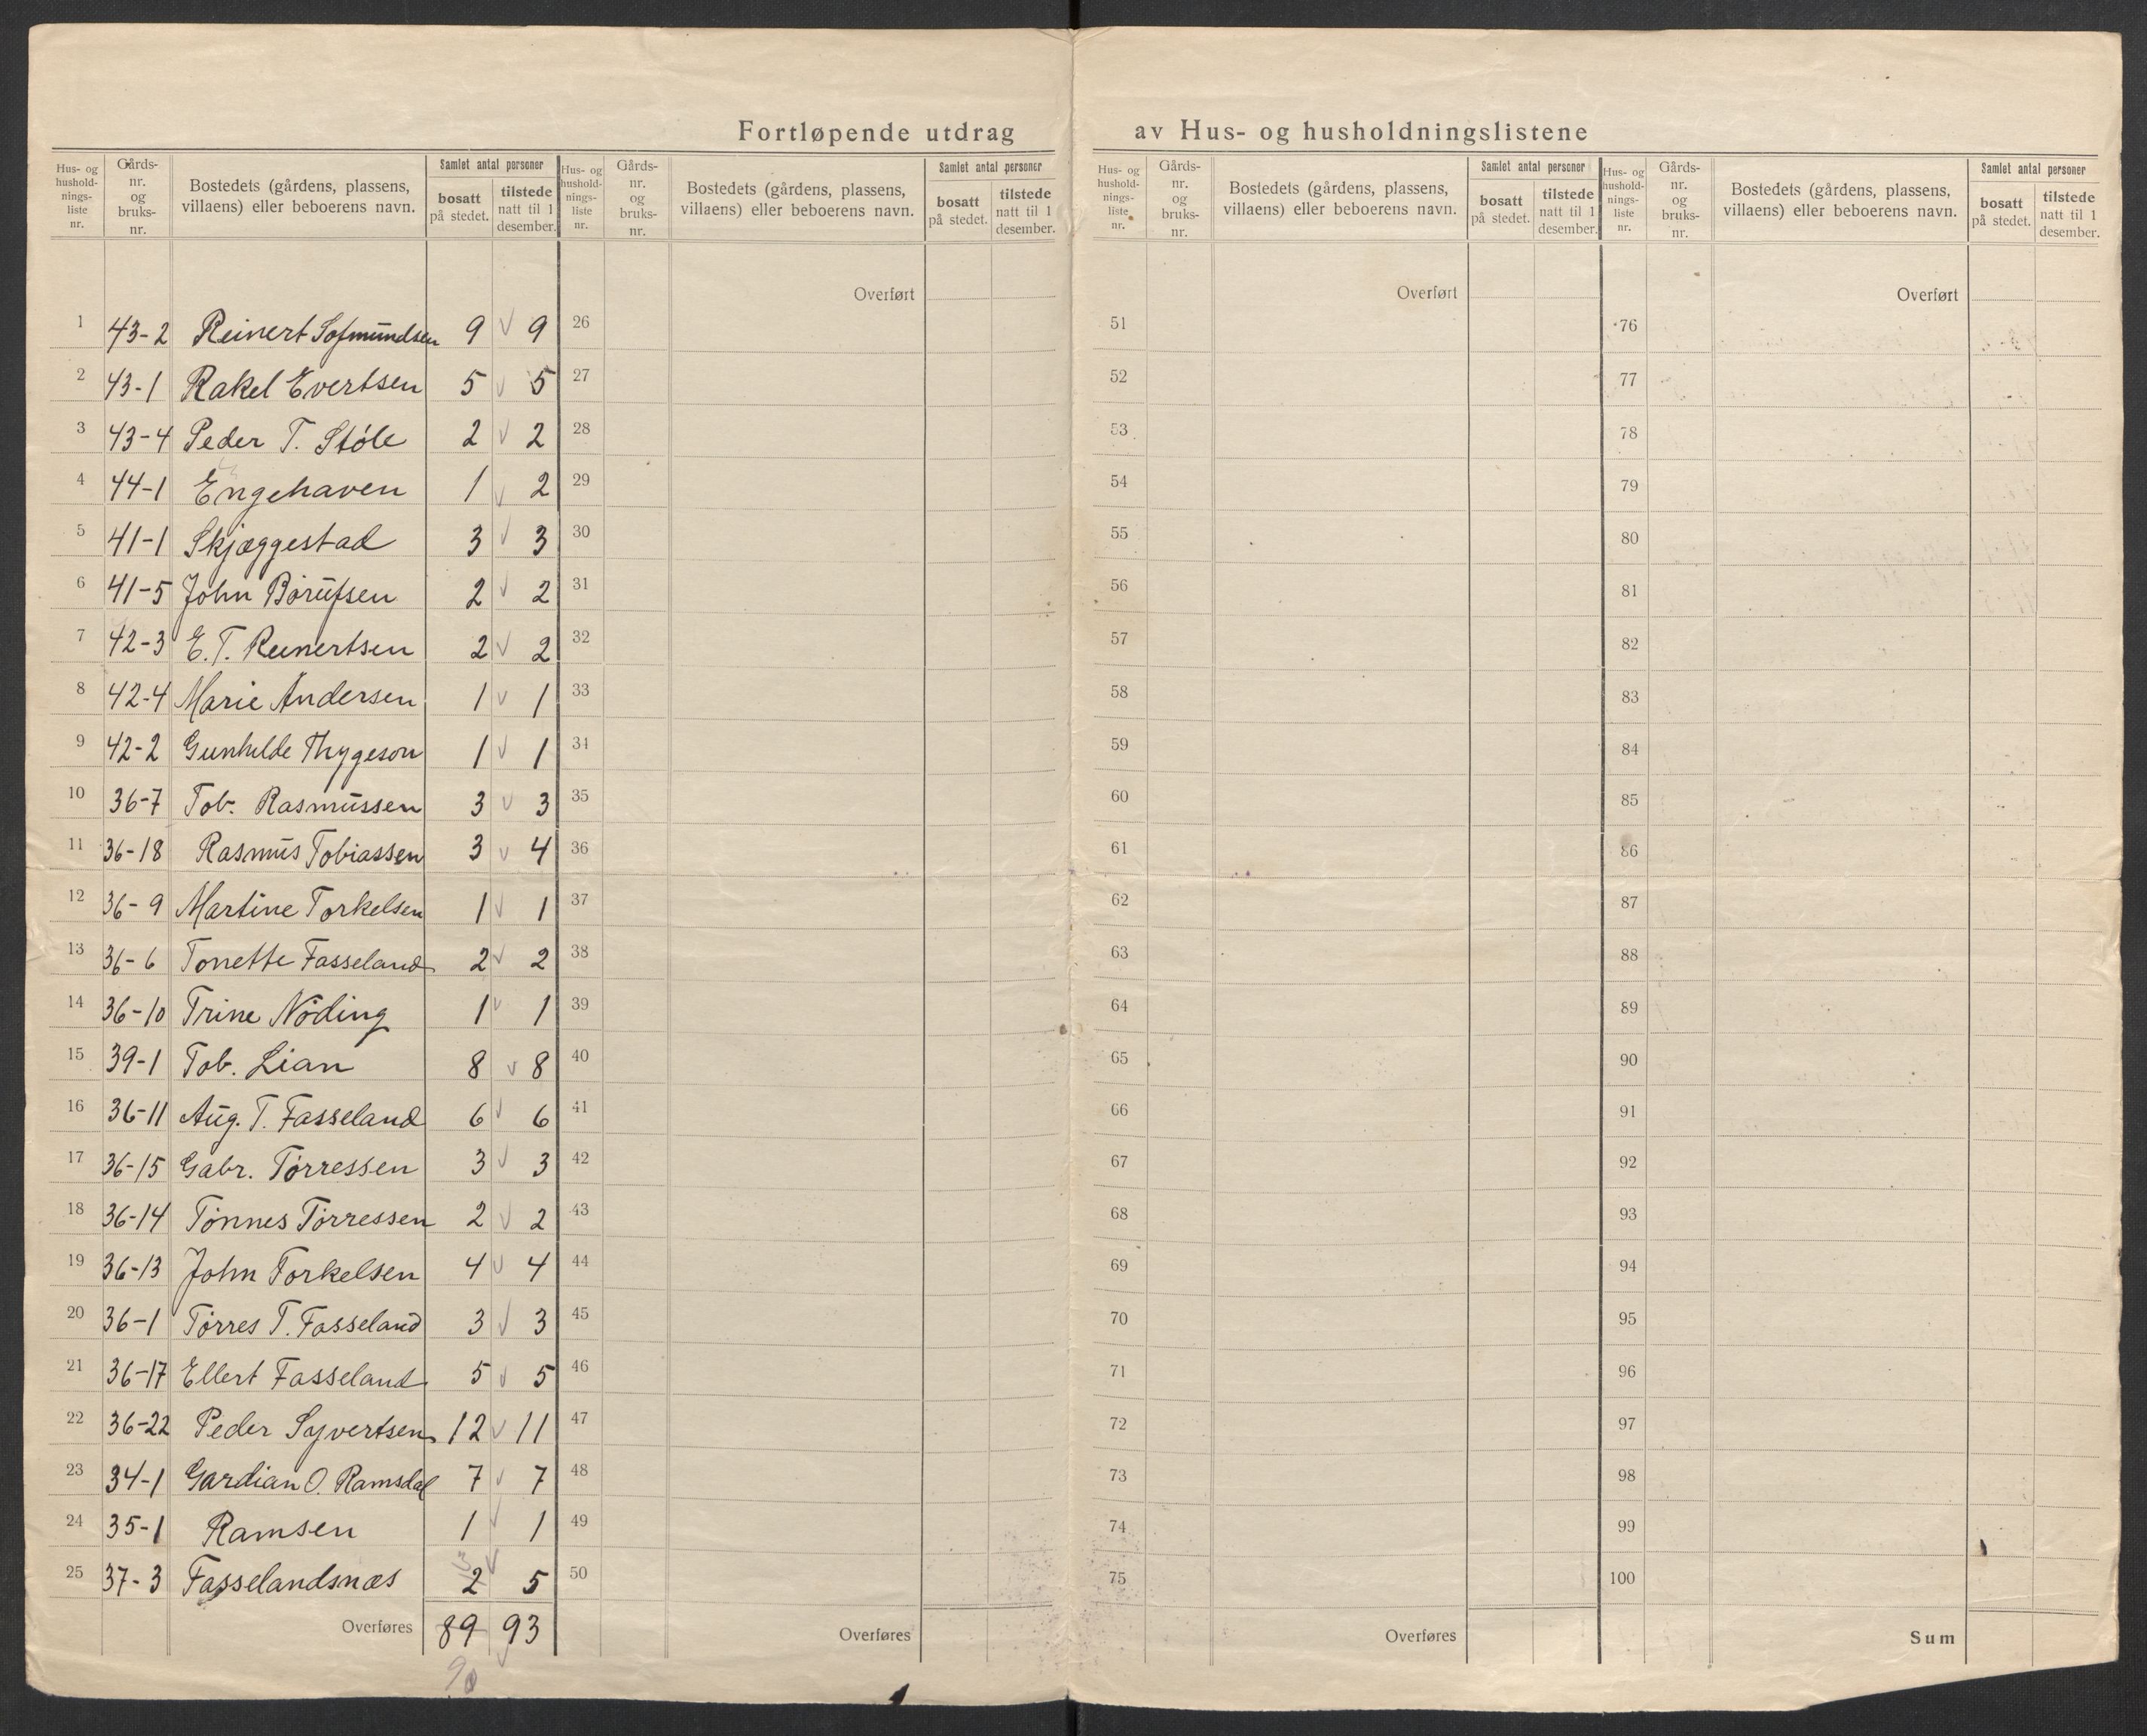 Fortløpende utdrag av Hus- og husholdningslistene
Hus- og hushold-nings-liste nr. Gårds-nr. og bruks-nr. Bostedets (gårdens, plassens, villaens) eller beboerens navn. Samlet antal personer bosatt på stedet. tilstede natt til 1 desember.
Hus- og hushold-nings-liste nr. Gårds-nr. og bruks-nr. Bostedets (gårdens, plassens, villaens) eller beboerens navn. Samlet antal personer bosatt på stedet. tilstede natt til 1 desember.
Hus- og hushold-nings-liste nr. Gårds-nr. og bruks-nr. Bostedets (gårdens, plassens, villaens) eller beboerens navn. Samlet antal personer bosatt på stedet. tilstede natt til 1 desember.
Hus- og hushold-nings-liste nr. Gårds-nr. og bruks-nr. Bostedets (gårdens, plassens, villaens) eller beboerens navn. Samlet antal personer bosatt på stedet. tilstede natt til 1 desember.
Overført Overført Overført
1 43-2 Reinert Sofmundsen 9 √ 9 26 51 76
2 43-1 Rakel Evertsen 5 √ 5 27 52 77
3 43-4 Peder T. Støle 2 √ 2 28 53 78
4 44-1 Engehaven 1 √ 2 29 54 79
5 41-1 Skjæggestad 3 √ 3 30 55 80
6 41-5 John Børufsen 2 √ 2 31 56 81
7 42-3 E. T. Reinertsen 2 √ 2 32 57 82
8 42-4 Marie Andersen 1 √ 1 33 58 83
9 42-2 Gunhilde Thygeson 1 √ 1 34 59 84
10 36-7 Tob. Rasmussen 3 √ 3 35 60 85
11 36-18 Rasmus Tobiassen 3 √ 4 36 61 86
12 36-9 Martine Torkelsen 1 √ 1 37 62 87
13 36-6 Tonette Fasseland 2 √ 2 38 63 88
14 36-10 Trine Nöding 1 √ 1 39 64 89
15 39-1 Tob. Lian 8 √ 8 40 65 90
16 36-11 Aug. T. Fasseland 6 √ 6 41 66 91
17 36-15 Gabr. Tørressen 3 √ 3 42 67 92
18 36-14 Tønnes Tørressen 2 √ 2 43 68 93
19 36-13 John Torkelsen 4 √ 4 44 69 94
20 36-1 Tørres T. Fasseland 3 √ 3 45 70 95
21 36-17 Ellert Fasseland 5 √ 5 46 71 96
22 36-22 Peder Syvertsen 12 √ 11 47 72 97
23 34-1 Gardian O. Ramsdal 7 √ 7 48 73 98
24 35-1 Ramsen 1 √ 1 49 74 99
25 37-3 Fasselandsnæs 3 2 √ 5 50 75 100
Overføres 89 93 Overføres Overføres Sum
90 √